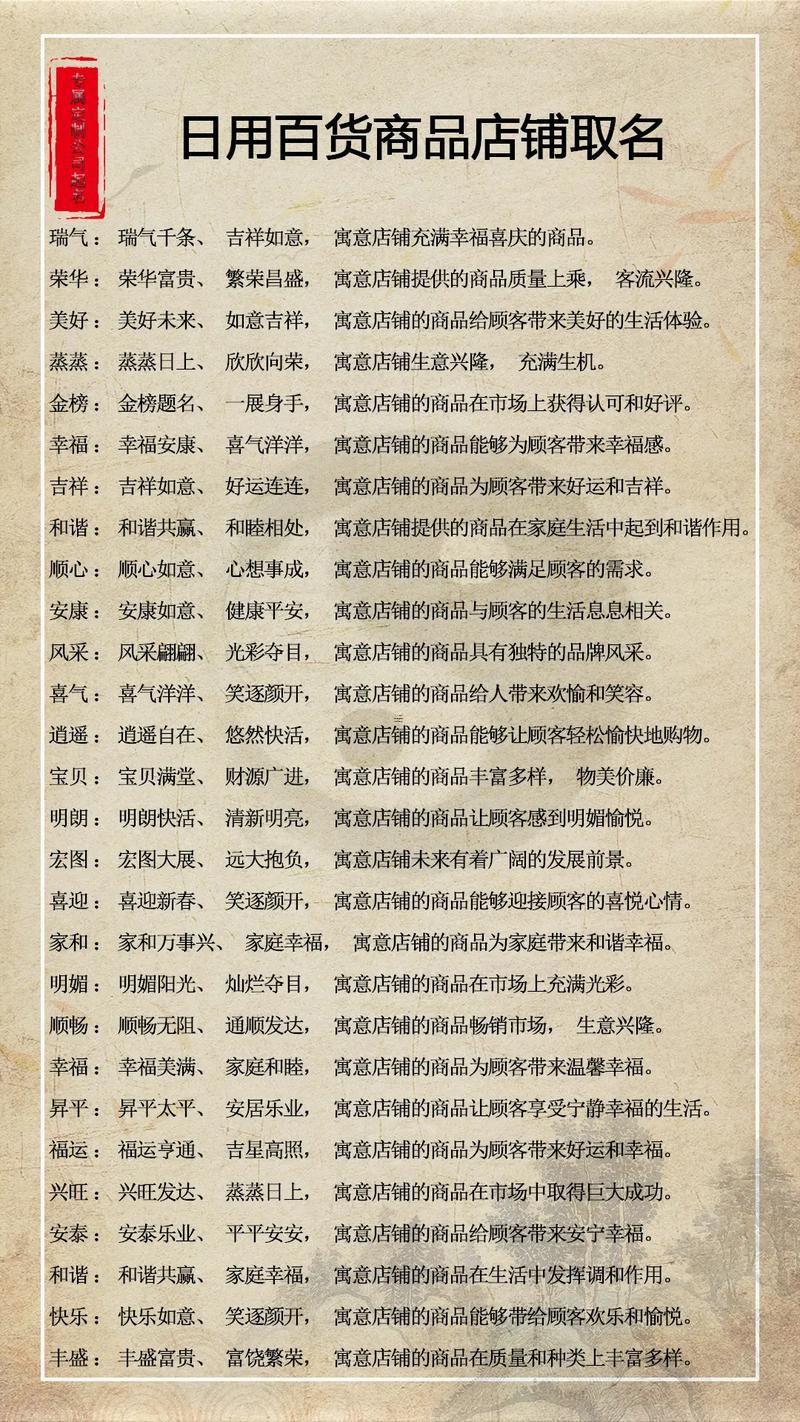 日用百货商品店铺取名
瑞气：瑞气千条、吉祥如意，寓意店铺充满幸福喜庆的商品。
荣华：荣华富贵、繁荣昌盛，寓意店铺提供的商品质量上乘，客流兴隆。
美好：美好未来、如意吉祥，寓意店铺的商品给顾客带来美好的生活体验。
蒸蒸：蒸蒸日上、欣欣向荣，寓意店铺生意兴隆，充满生机。
金榜：金榜题名、一展身手，寓意店铺的商品在市场上获得认可和好评。
幸福：幸福安康、喜气洋洋，寓意店铺的商品能够为顾客带来幸福感。
吉祥：吉祥如意、好运连连，寓意店铺的商品为顾客带来好运和吉祥。
和谐：和谐共赢、和睦相处，寓意店铺提供的商品在家庭生活中起到和谐作用。
顺心：顺心如意、心想事成，寓意店铺的商品能够满足顾客的需求。
安康：安康如意、健康平安，寓意店铺的商品与顾客的生活息息相关。
风采：风采翩翩、光彩夺目，寓意店铺的商品具有独特的品牌风采。
喜气：喜气洋洋、笑逐颜开，寓意店铺的商品给人带来欢愉和笑容。
逍遥：逍遥自在、悠然快活，寓意店铺的商品能够让顾客轻松愉快地购物。
宝贝：宝贝满堂、财源广进，寓意店铺的商品丰富多样，物美价廉。
明朗：明朗快活、清新明亮，寓意店铺的商品让顾客感到明媚愉悦。
宏图：宏图大展、远大抱负，寓意店铺未来有着广阔的发展前景。
喜迎：喜迎新春、笑逐颜开，寓意店铺的商品能够迎接顾客的喜悦心情。
家和：家和万事兴、家庭幸福，寓意店铺的商品为家庭带来和谐幸福。
明媚：明媚阳光、灿烂夺目，寓意店铺的商品在市场上充满光彩。
顺畅：顺畅无阻、通顺发达，寓意店铺的商品畅销市场，生意兴隆。
幸福：幸福美满、家庭和睦，寓意店铺的商品为顾客带来温馨幸福。
昇平：昇平太平、安居乐业，寓意店铺的商品让顾客享受宁静幸福的生活。
福运：福运亨通、吉星高照，寓意店铺的商品为顾客带来好运和幸福。
兴旺：兴旺发达、蒸蒸日上，寓意店铺的商品在市场中取得巨大成功。
安泰：安泰乐业、平平安安，寓意店铺的商品给顾客带来安宁幸福。
和谐：和谐共赢、家庭幸福，寓意店铺的商品在生活中发挥调和作用。
快乐：快乐如意、笑逐颜开，寓意店铺的商品能够带给顾客欢乐和愉悦。
丰盛：丰盛富贵、富饶繁荣，寓意店铺的商品在质量和种类上丰富多样。